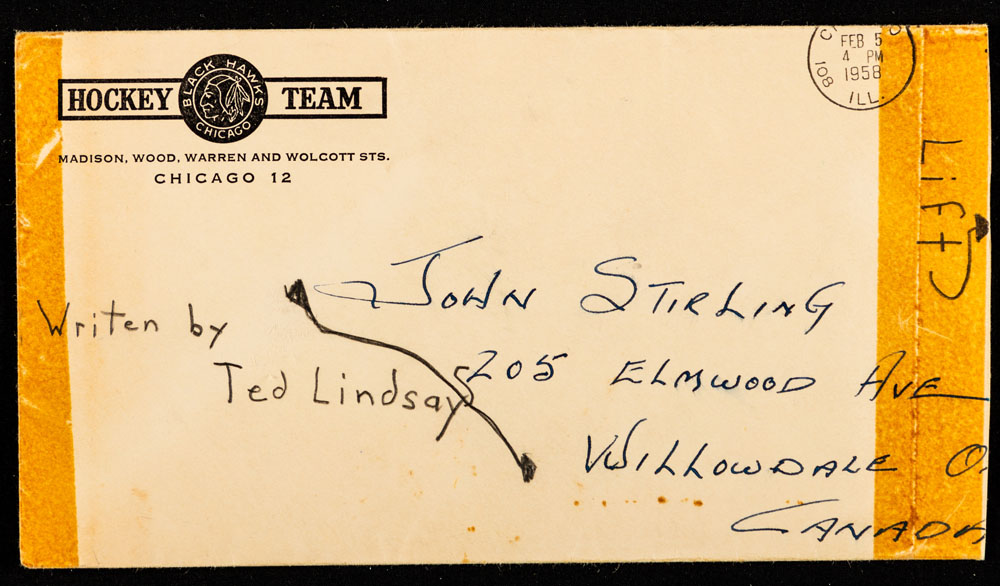 HOCKEY BLACK HAWKS CHICAGO TEAM
MADISON, WOOD, WARREN AND WOLCOTT STS.
CHICAGO 12
FEB 5
4 PM
1958
108 ILL.
Lift
John Stirling
205 Elmwood Ave
Willowdale O.
Canada
Writen by
Ted Lindsay